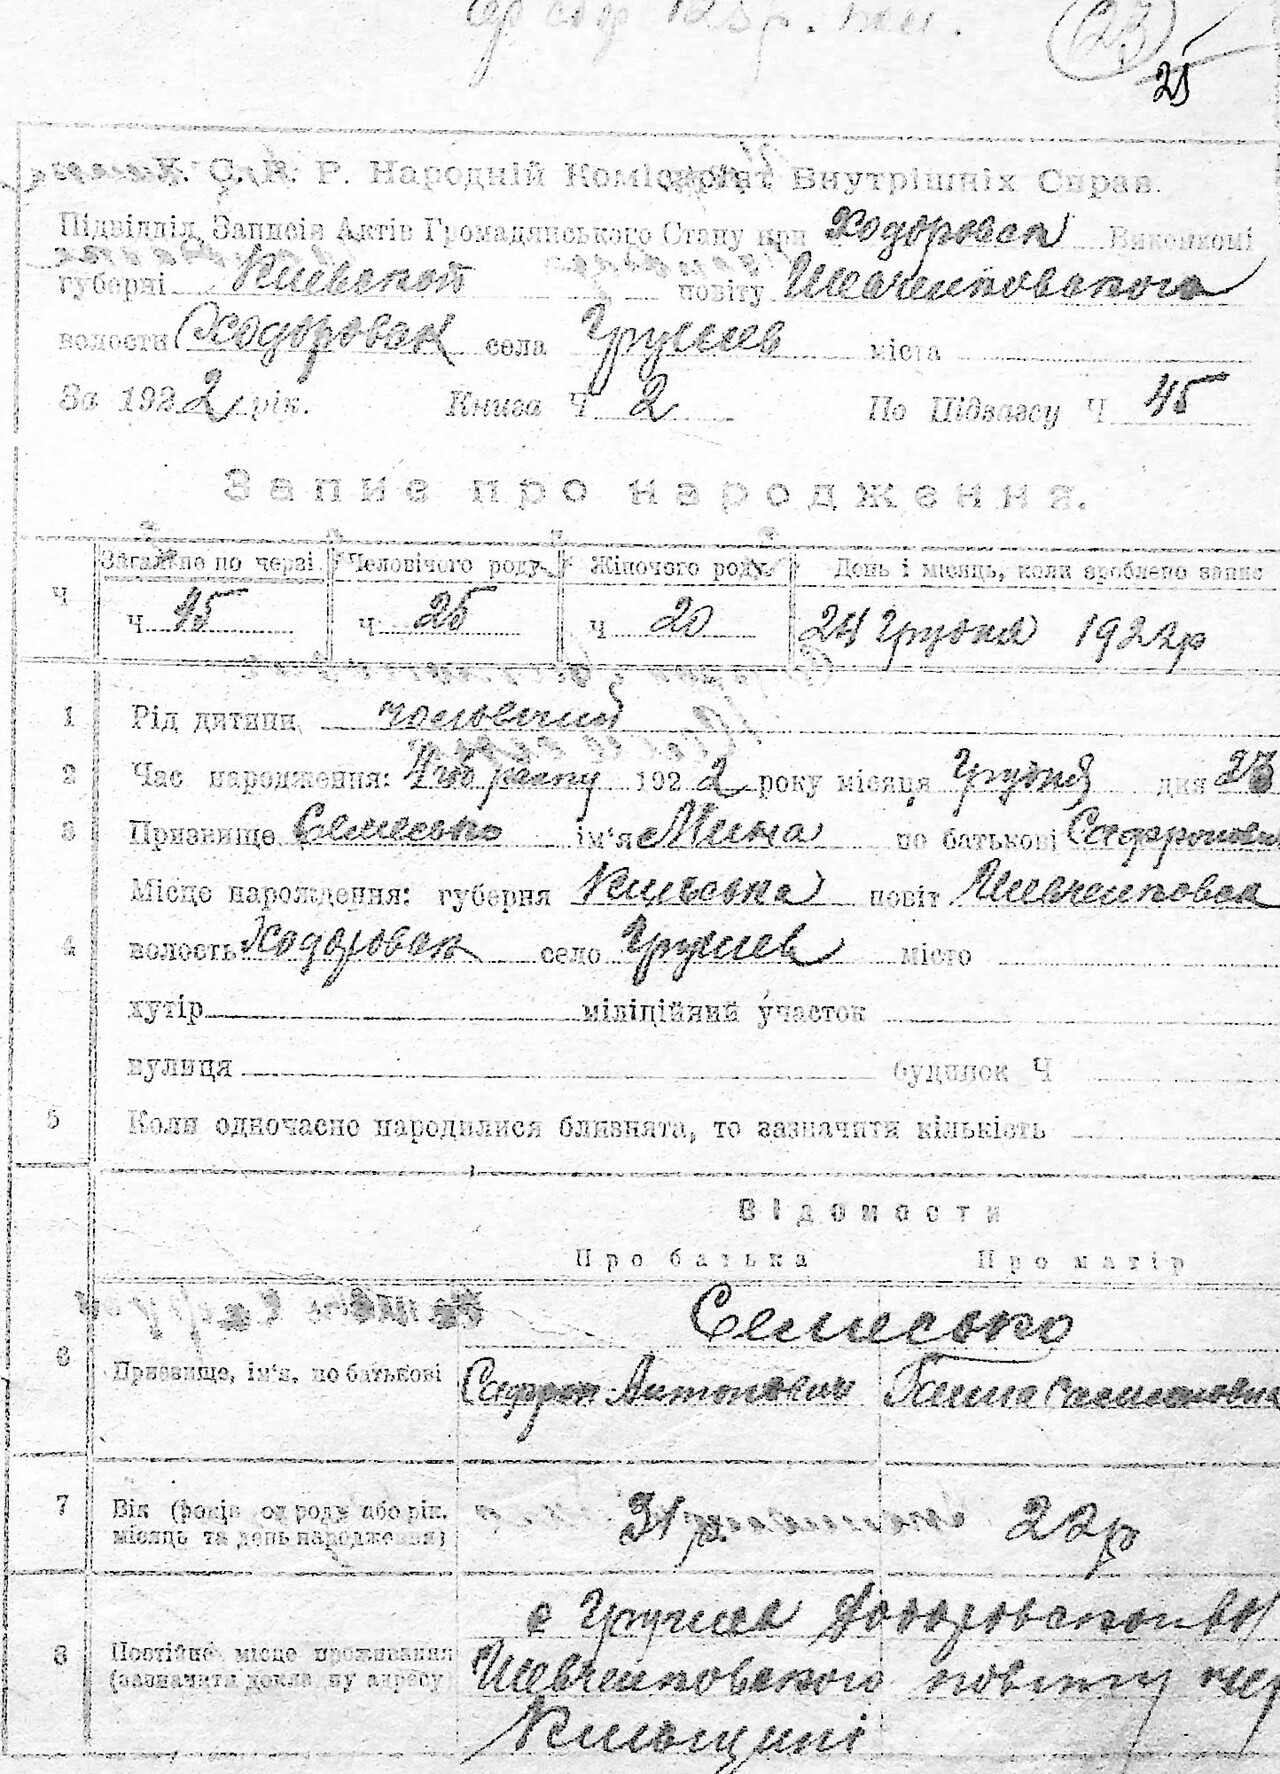 23
25
У. С. Р. Р. Народній Комісаріят Внутрішніх Справ.
Підвідділ Записів Актів Громадянського Стану при Ходоровск Виконкомі
губерні Київской повіту Шевченковского
волости Ходоровск села Грушев міста
За 1922 рік. Книга Ч 2 По Підзагсу Ч 45
Запис про народження.
Ч Загальне по черзі Человічого роду Жіночого роду День і місяць, коли зроблено запис
Ч 45 Ч 25 Ч 20 24 Грудня 1922р
1 Рід дитини чоловічий
2 Час народження: 1922 року місяця Грудня дня 23
3 Призвище Семесько ім'я Мина по батькові Сафронович
Місце нарождення: губерня Київська повіт Шевченковск
4 волость Ходоровск село Грушев місто
хутір міліційний участок
вулиця будинок Ч
5 Коли одночасно народилися близнята, то зазначити кількість
Відомости
Про батька Про матір
Семесько
6 Призвище, ім'я, по батькові Сафрон Антонович Ганна
7 Вік (років од роду або рік, місяць та день народження) 31 р 22р
8 Постійне місце проживання (зазначити докладну адресу) с Грушев Ходоровскои вол
Шевченковского повіту
Київщині